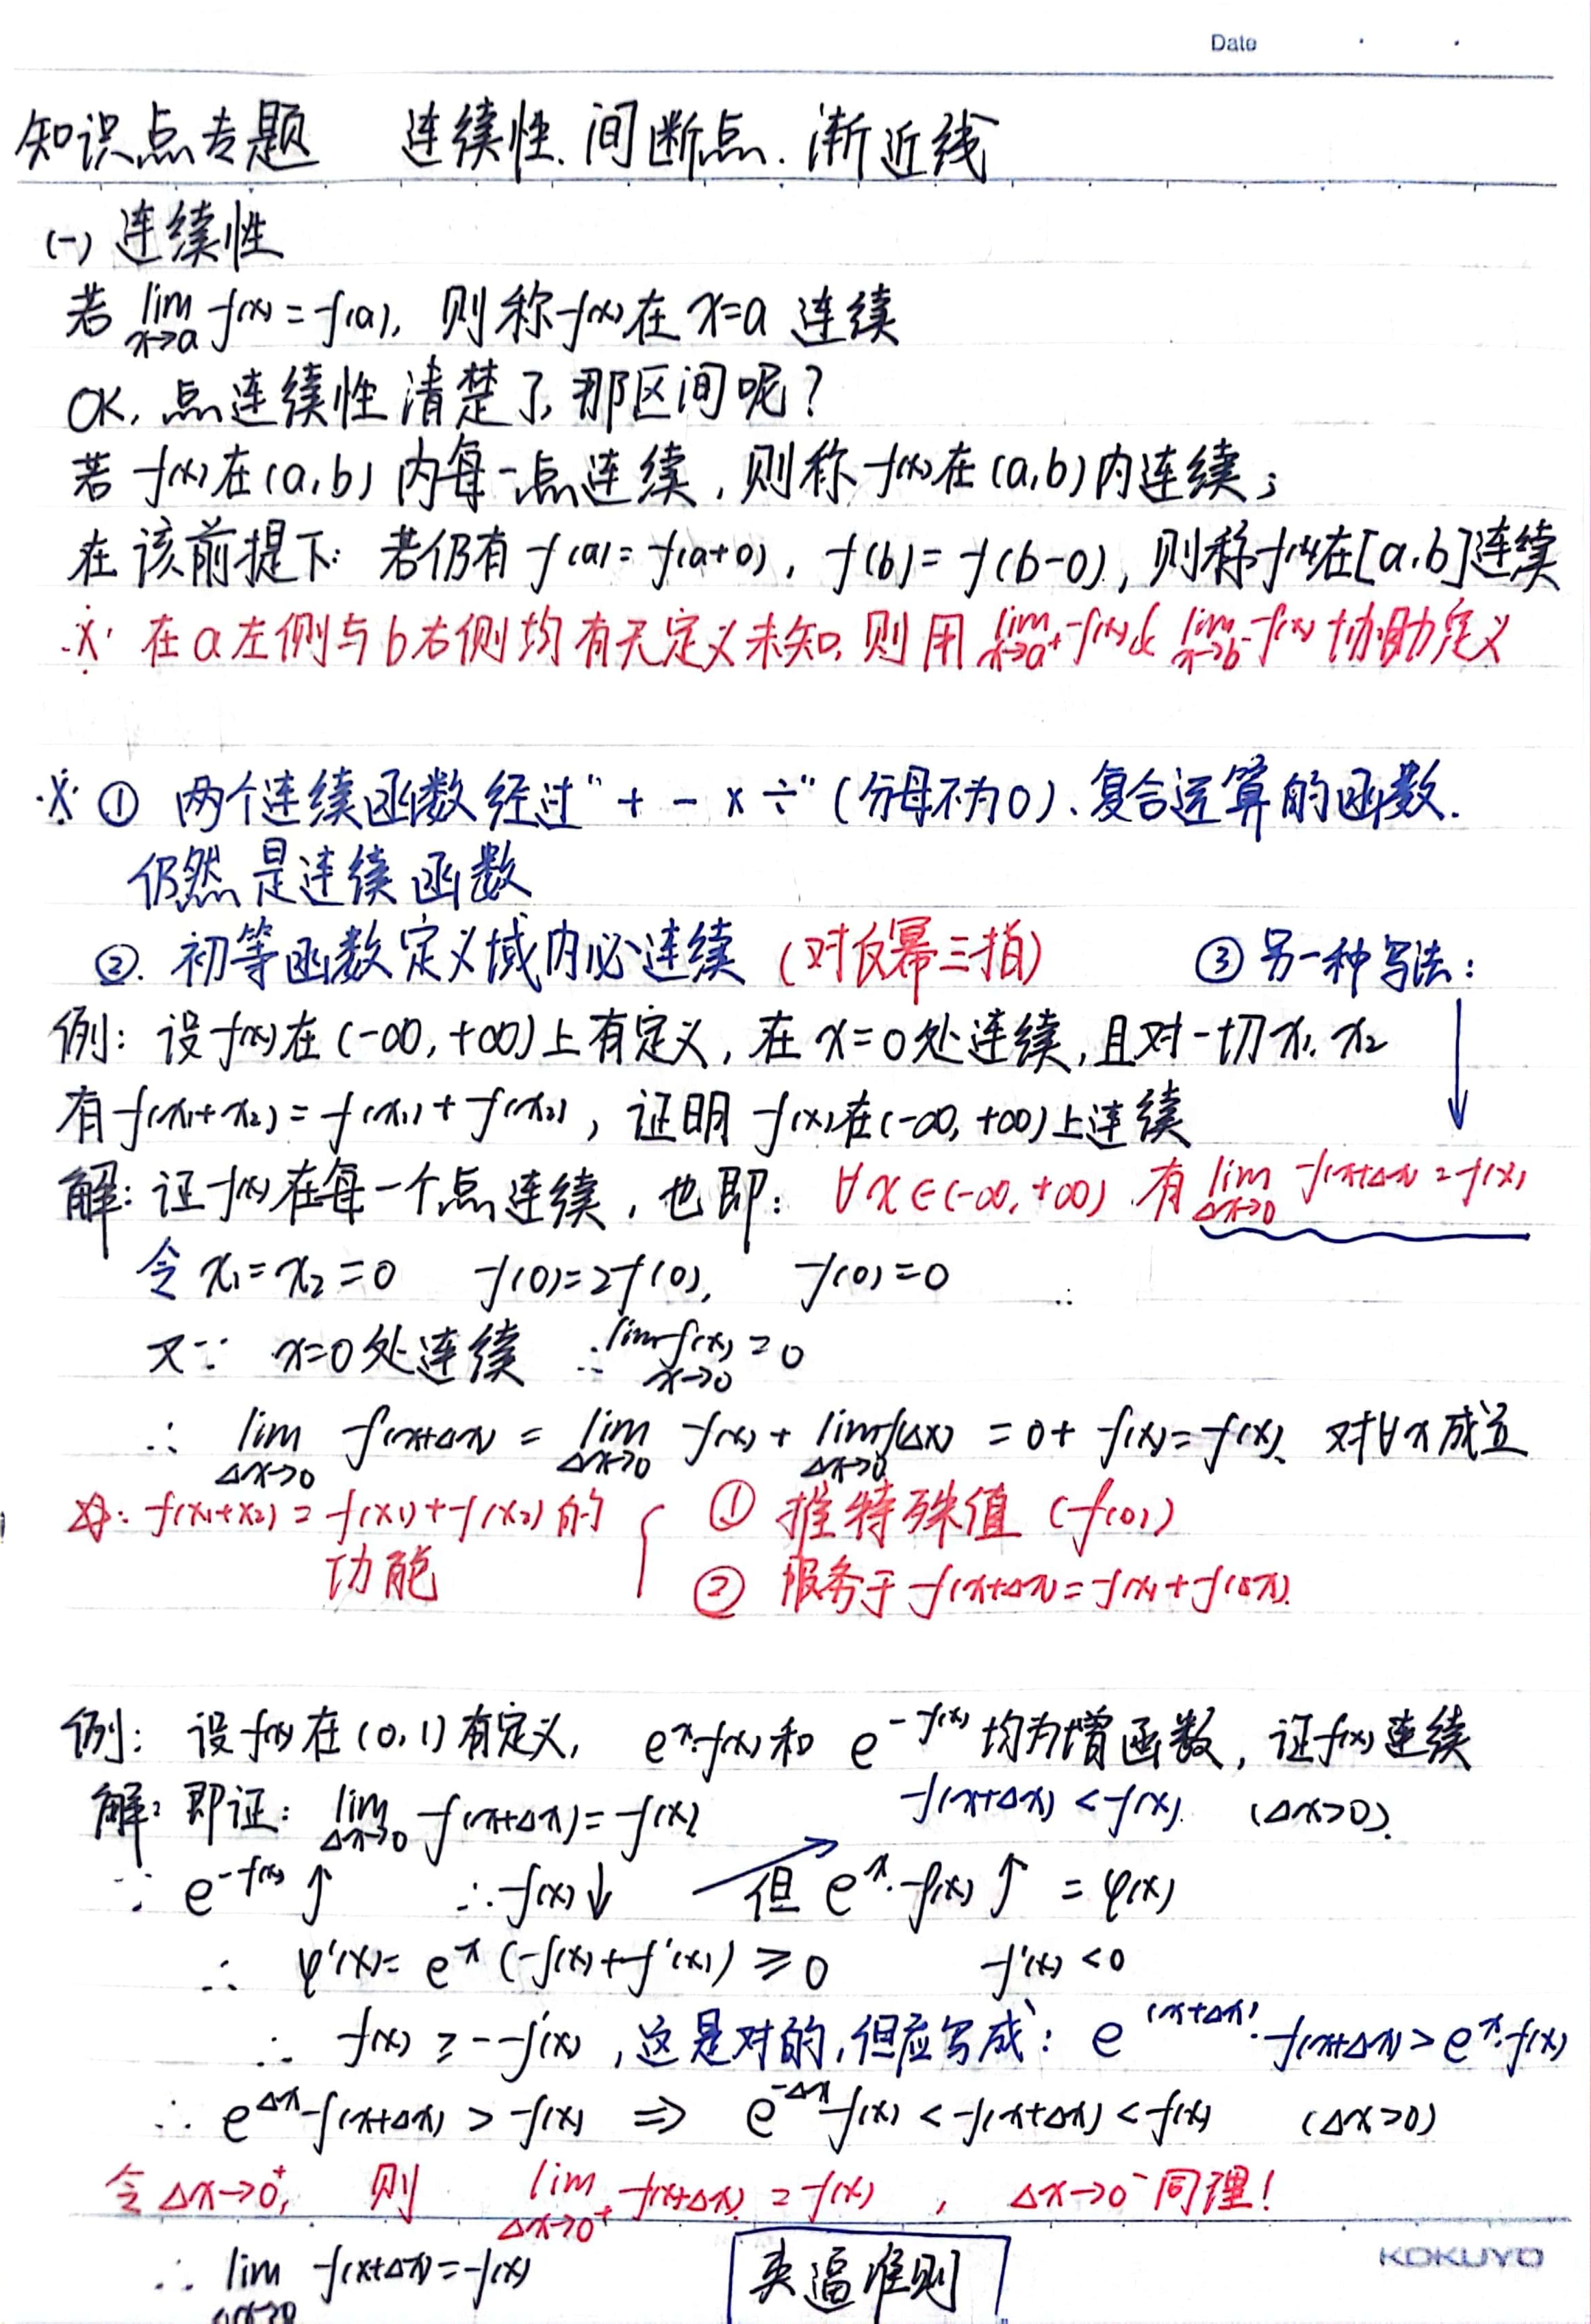 Date
知识点专题 连续性、间断点、渐近线
(一) 连续性
若 lim_{x→a} f(x) = f(a), 则称f(x)在 x=a 连续
OK, 点连续性清楚了, 那区间呢?
若 f(x)在(a,b)内每一点连续, 则称 f(x)在(a,b)内连续;
在该前提下: 若仍有 f(a) = f(a+0), f(b) = f(b-0), 则称f(x)在[a,b]连续
※ 在a左侧与b右侧均有无定义未知, 则用 lim_{x→a⁺} f(x) & lim_{x→b⁻} f(x) 协助定义
※ ① 两个连续函数经过"+ - × ÷"(分母不为0)、复合运算的函数.
仍然是连续函数
②. 初等函数定义域内必连续 (对反幂三指) ③ 另一种写法:
例: 设f(x)在(-∞, +∞)上有定义, 在 x=0处连续, 且对一切x₁, x₂
有f(x₁+x₂) = f(x₁) + f(x₂), 证明 f(x)在(-∞, +∞)上连续
解: 证f(x)在每一个点连续, 也即: ∀x∈(-∞, +∞) 有 lim_{Δx→0} f(x+Δx) = f(x)
令 x₁ = x₂ = 0 f(0) = 2f(0), f(0) = 0
又∵ x=0处连续 ∴ lim_{x→0} f(x) = 0
∴ lim_{Δx→0} f(x+Δx) = lim_{Δx→0} f(x) + lim_{Δx→0} f(Δx) = 0 + f(x) = f(x). 对∀x成立
☆: f(x₁+x₂) = f(x₁) + f(x₂) 的 { ① 推特殊值 (f(0))
功能 ② 服务于 f(x+Δx) = f(x) + f(Δx).
例: 设f(x)在(0,1)有定义, e^x·f(x)和 e^{-f(x)}均为增函数, 证f(x)连续
解: 即证: lim_{Δx→0} f(x+Δx) = f(x) f(x+Δx) < f(x). (Δx>0).
∵ e^{-f(x)} ↑ ∴ f(x)↓ ↗ 但 e^x·f(x) ↑ = φ(x)
∴ φ'(x) = e^x (f(x) + f'(x)) ≥ 0 f'(x) < 0
∴ f(x) ≥ -f'(x), 这是对的, 但应写成: e^{(x+Δx)}·f(x+Δx) > e^x·f(x)
∴ e^{Δx} f(x+Δx) > f(x) ⇒ e^{-Δx} f(x) < f(x+Δx) < f(x) (Δx>0)
令 Δx→0⁺, 则 lim_{Δx→0⁺} f(x+Δx) = f(x), Δx→0⁻同理!
∴ lim_{Δx→0} f(x+Δx) = f(x) 夹逼准则
KOKUYO